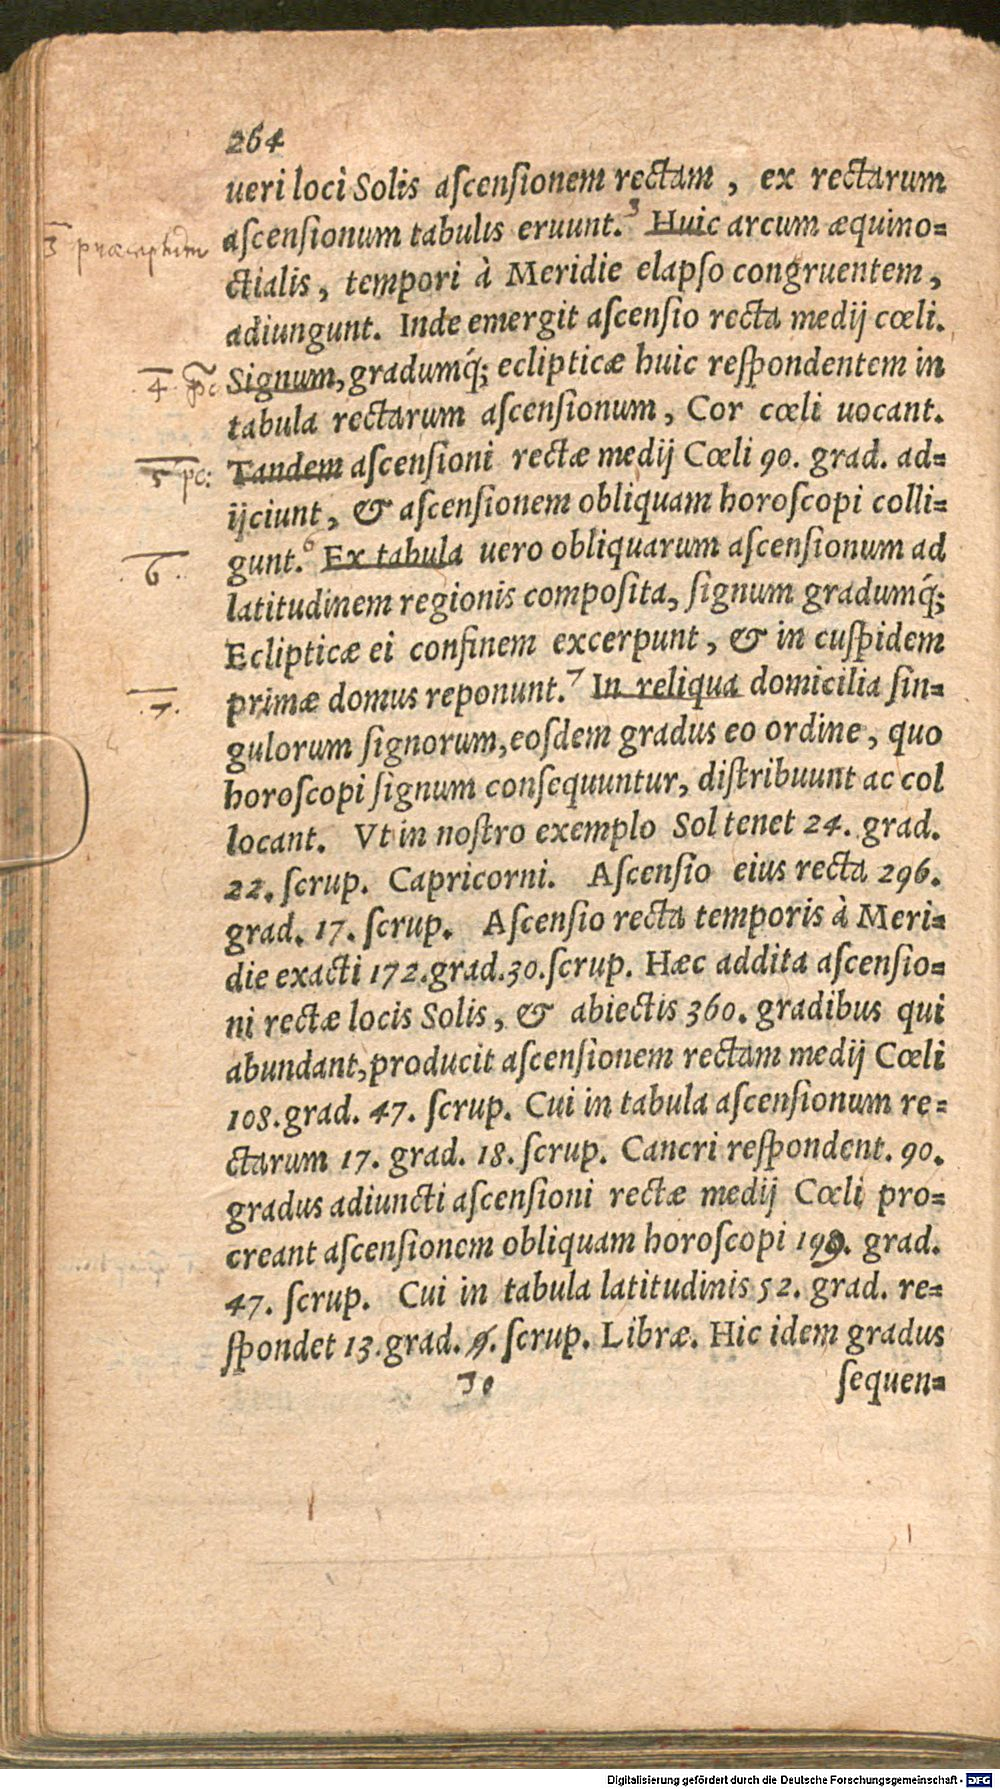 264
ueri loci Solis aſcenſionem rectam, ex rectarum
3 præceptum
aſcenſionum tabulis eruunt. 3 Huic arcum æquino=
ctialis, tempori à Meridie elapſo congruentem,
adiungunt. Inde emergit aſcenſio recta medij cœli.
4. pc:
Signum, gradumq́; eclipticæ huic reſpondentem in
tabula rectarum aſcenſionum, Cor cœli uocant.
5 pc:
Tandem aſcenſioni rectæ medij Cœli 90. grad. ad=
ijciunt, & aſcenſionem obliquam horoſcopi colli=
6.
gunt. 6 Ex tabula uero obliquarum aſcenſionum ad
latitudinem regionis compoſita, ſignum gradumq́;
Eclipticæ ei confinem excerpunt, & in cuſpidem
7.
primæ domus reponunt. 7 In reliqua domicilia ſin=
gulorum ſignorum, eoſdem gradus eo ordine, quo
horoſcopi ſignum conſequuntur, diſtribuunt ac col
locant. Vt in noſtro exemplo Sol tenet 24. grad.
22. ſcrup. Capricorni. Aſcenſio eius recta 296.
grad. 17. ſcrup. Aſcenſio recta temporis à Meri=
die exacti 172. grad. 30. ſcrup. Hæc addita aſcenſio=
ni rectæ locis Solis, & abiectis 360. gradibus qui
abundant, producit aſcenſionem rectam medij Cœli
108. grad. 47. ſcrup. Cui in tabula aſcenſionum re=
ctarum 17. grad. 18. ſcrup. Cancri reſpondent. 90.
gradus adiuncti aſcenſioni rectæ medij Cœli pro=
creant aſcenſionem obliquam horoſcopi 199. grad.
47. ſcrup. Cui in tabula latitudinis 52. grad. re=
ſpondet 13. grad. 9. ſcrup. Libræ. Hic idem gradus
30
ſequen=
Digitalisierung gefördert durch die Deutsche Forschungsgemeinschaft - DFG